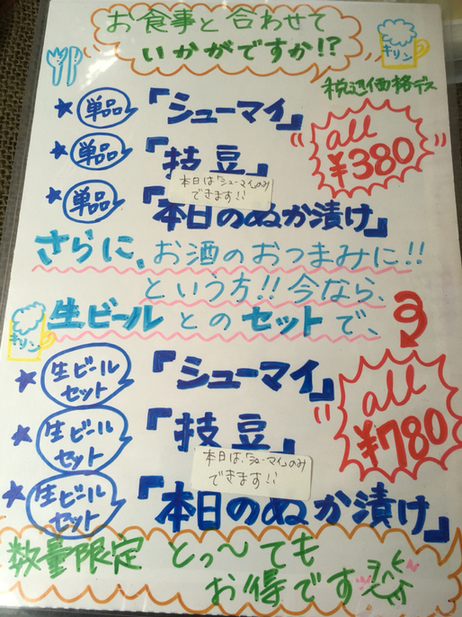 お食事と合わせて
いかがですか!?
キリン
税込価格デス
★ 単品 「シューマイ」
all ¥380
★ 単品 「枝豆」
本日は「シューマイ」のみ
できます!!
★ 単品 「本日のぬか漬け」
さらに、お酒のおつまみに!!
という方!! 今なら、
キリン
生ビールとのセットで、
★ 生ビールセット 「シューマイ」
all ¥780
★ 生ビールセット 「枝豆」
本日は、「シューマイ」のみ
できます!!
★ 生ビールセット 「本日のぬか漬け」
数量限定 とっ〜ても
お得です